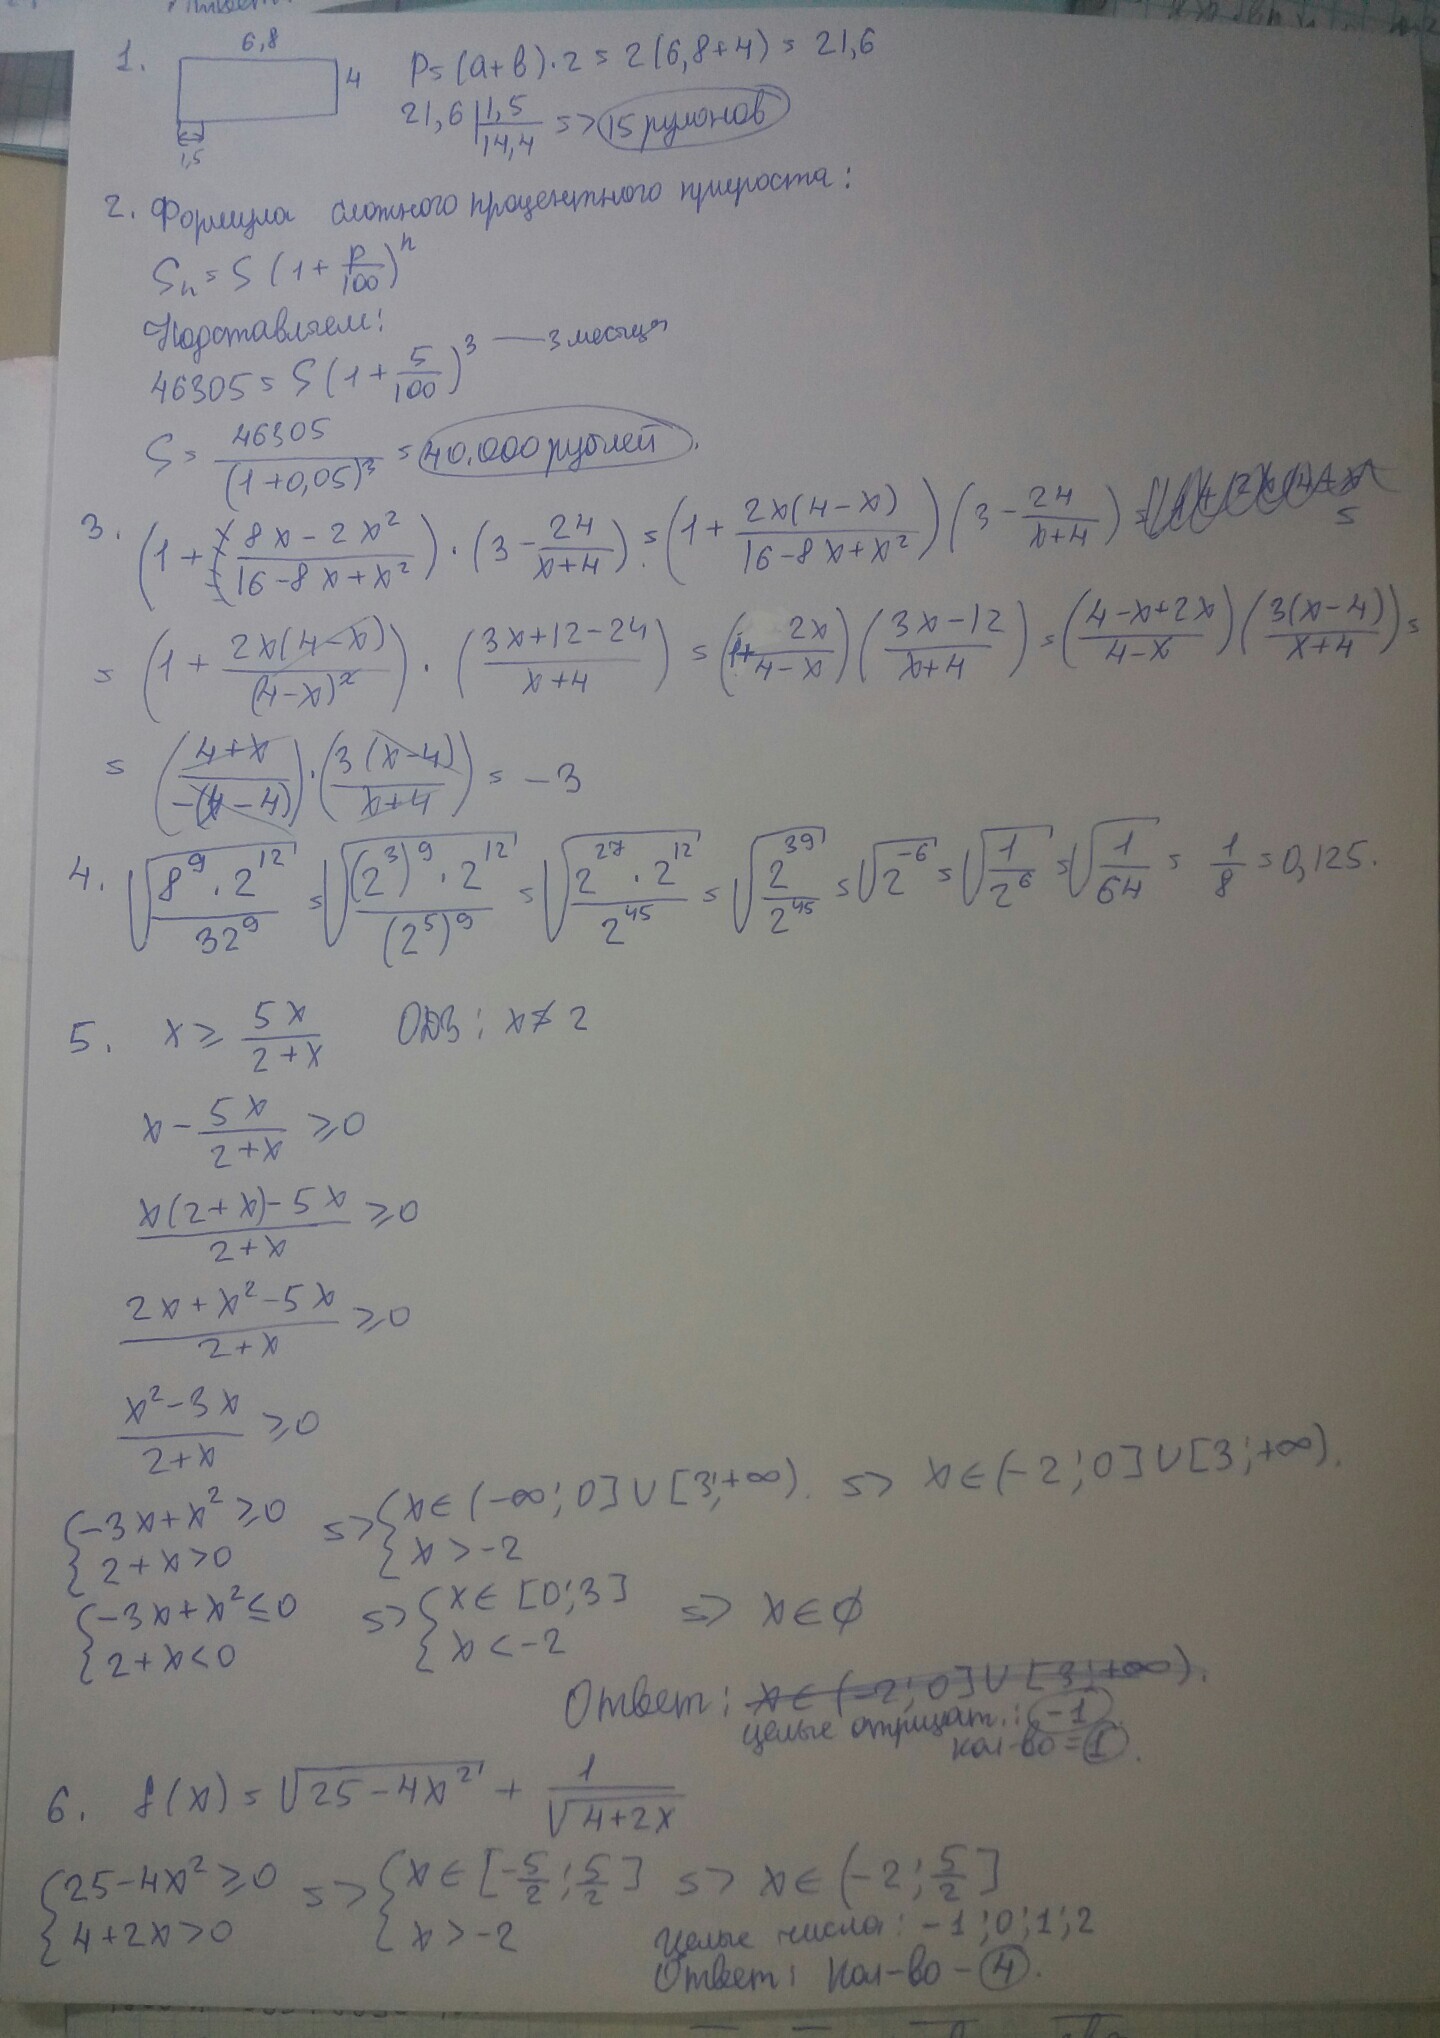 1. 6,8 4 1,5 P=(a+b)·2=2(6,8+4)=21,6
21,6 | 1,5 / 14,4 => 15 рулонов
2. Формула сложного процентного прироста:
Sn=S(1+p/100)^n
Подставляем:
46305=S(1+5/100)^3 — 3 месяца
S=46305/(1+0,05)^3=40.000 рублей.
3. (1+(8x-2x²)/(16-8x+x²))·(3-24/(x+4))=(1+2x(4-x)/(16-8x+x²))(3-24/(x+4))=
=(1+2x(4-x)/(4-x)²)·((3x+12-24)/(x+4))=(1+2x/(4-x))((3x-12)/(x+4))=((4-x+2x)/(4-x))(3(x-4)/(x+4))=
=((4+x)/-(x-4))·(3(x-4)/(x+4))=-3
4. √(8^9·2^12/32^9)=√((2^3)^9·2^12/(2^5)^9)=√(2^27·2^12/2^45)=√(2^39/2^45)=√(2^-6)=√(1/2^6)=√(1/64)=1/8=0,125.
5. x≥5x/(2+x) ОДЗ: x≠2
x-5x/(2+x)≥0
(x(2+x)-5x)/(2+x)≥0
(2x+x²-5x)/(2+x)≥0
(x²-3x)/(2+x)≥0
{-3x+x²≥0 2+x>0 => {x∈(-∞;0]∪[3;+∞). x>-2 => x∈(-2;0]∪[3;+∞).
{-3x+x²≤0 2+x<0 => {x∈[0;3] x<-2 => x∈∅
Ответ: x∈(-2;0]∪[3;+∞).
целые отрицат.: -1
кол-во=1.
6. f(x)=√(25-4x²)+1/√(4+2x)
{25-4x²≥0 4+2x>0 => {x∈[-5/2;5/2] x>-2 => x∈(-2;5/2]
Целые числа: -1;0;1;2
Ответ: кол-во-4.